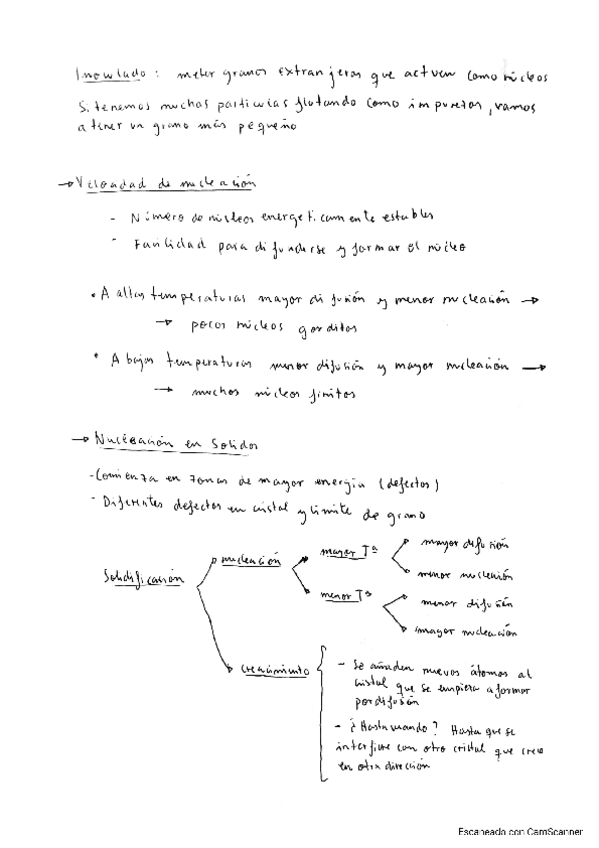 Inoculado: meter granos extranjeros que actuen como núcleos
Si tenemos muchas particulas flotando como impurezas, vamos
a tener un grano más pequeño
→ Velocidad de nucleación
- Número de núcleos energeticamente estables
- Facilidad para difundirse y formar el núcleo
• A altas temperaturas mayor difusión y menor nucleación →
→ pocos núcleos gorditos
• A bajas temperaturas menor difusión y mayor nucleación →
→ muchos núcleos finitos
→ Nucleación en Solidos
- Comienza en zonas de mayor energía (defectos)
- Diferentes defectos en cristal y límite de grano
Solidificación
nucleación
mayor Tª
mayor difusión
menor nucleación
menor Tª
menor difusión
mayor nucleación
crecimiento
- Se añaden nuevos átomos al
cristal que se empieza a formar
por difusión
- ¿Hasta cuando? Hasta que se
interfiere con otro cristal que crece
en otra dirección
Escaneado con CamScanner